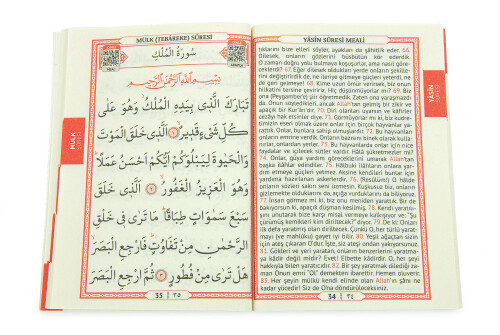 MÜLK (TEBÂREKE) SÛRESİ
سُورَةُ الْمُلْكِ
بِسْمِ اللّٰهِ الرَّحْمٰنِ الرَّحِيمِ
تَبَارَكَ الَّذٖي بِيَدِهِ الْمُلْكُ وَهُوَ عَلٰى
كُلِّ شَيْءٍ قَدٖيرٌۙ ١ اَلَّذٖي خَلَقَ الْمَوْتَ
وَالْحَيٰوةَ لِيَبْلُوَكُمْ اَيُّكُمْ اَحْسَنُ عَمَلًاۜ
وَهُوَ الْعَزٖيزُ الْغَفُورُۙ ٢ اَلَّذٖي خَلَقَ
سَبْعَ سَمٰوَاتٍ طِبَاقًاۜ مَا تَرٰى فٖي خَلْقِ
الرَّحْمٰنِ مِنْ تَفَاوُتٍۜ فَارْجِعِ الْبَصَرَۙ
هَلْ تَرٰى مِنْ فُطُورٍ ٣ ثُمَّ ارْجِعِ الْبَصَرَ
35 ٣٥
MÜLK
SÛRESİ
YÂSÎN SÛRESİ MEALİ
tıklarını bize elleri söyler, ayakları da şâhitlik eder. 66.
Dilesek, onların gözlerini büsbütün kör ederdik.
O zaman doğru yolu bulmaya koşuşurlar, ama nasıl göre-
ceklerdi? 67. Eğer dilesek oldukları yerde onların şekille-
rini değiştirirdik de, ne ileriye gitmeye güçleri yeterdi, ne
de geri gelmeye! 68. Kime uzun ömür verirsek, biz onun
hilkatini tersine çeviririz. Hiç düşünmüyorlar mı? 69. Biz
ona (Peygamber'e) şiir öğretmedik. Zaten ona yaraşmazdı
da. Onun söyledikleri, ancak Allah'tan gelmiş bir zikir ve
apaçık bir Kur'ân'dır. 70. Diri olanları uyarsın ve kâfirler
cezâyı hak etsinler diye. 71. Görmüyorlar mı ki, biz kudre-
timizin eseri olmak üzere onlar için birçok hayvanlar ya-
rattık. Onlar, bunlara sahip olmuşlardır. 72. Bu hayvanları
onların emrine verdik. Onların bazısını binek olarak kulla-
nırlar, onlardan yerler. 73. Bu hayvanlarda onlar için nice
faydalar ve içilecek sütler vardır. Hâlâ şükretmezler mi?
74. Onlar, güya yardım göreceklerini umarak Allah'tan
başka ilâhlar edindiler. 75. Hâlbuki ilâhların onlara yar-
dım etmeye güçleri yetmez. Aksine kendileri bunlar için
yardıma hazırlanan askerlerdir. 76. (Resûlüm!) O hâlde
onların sözleri sakın seni üzmesin. Kuşkusuz biz, onların
gizlemekte olduklarını da, açığa vurduklarını da biliyoruz.
77. İnsan görmez mi ki, biz onu meniden yarattık. Bir de
bakıyorsun ki, apaçık düşman kesilmiş. 78. Kendi yaratılı-
şını unutarak bize karşı misal vermeye kalkışıyor ve: "Şu
çürümüş kemikleri kim diriltecek?" diyor. 79. De ki: Onları
ilk defa yaratmış olan diriltecek. Çünkü O, her türlü yarat-
mayı (ve mahlûku) gayet iyi bilir. 80. Yeşil ağaçtan sizin
için ateş çıkaran O'dur. İşte, siz ateşi ondan yakıyorsunuz.
81. Gökleri ve yeri yaratan, onların benzerlerini yaratma-
ya kâdir değil midir? Evet! Elbette kâdirdir. O, her şeyi
hakkıyla bilen yaratıcıdır. 82. Bir şey yaratmak dilediği za-
man Onun emri "Ol" demekten ibarettir. Hemen oluverir.
83. Her şeyin mülkü kendi elinde olan Allah'ın şânı ne
kadar yücedir! Siz de Ona döneceksiniz.
34 ٣٤
YÂSÎN
SÛRESİ